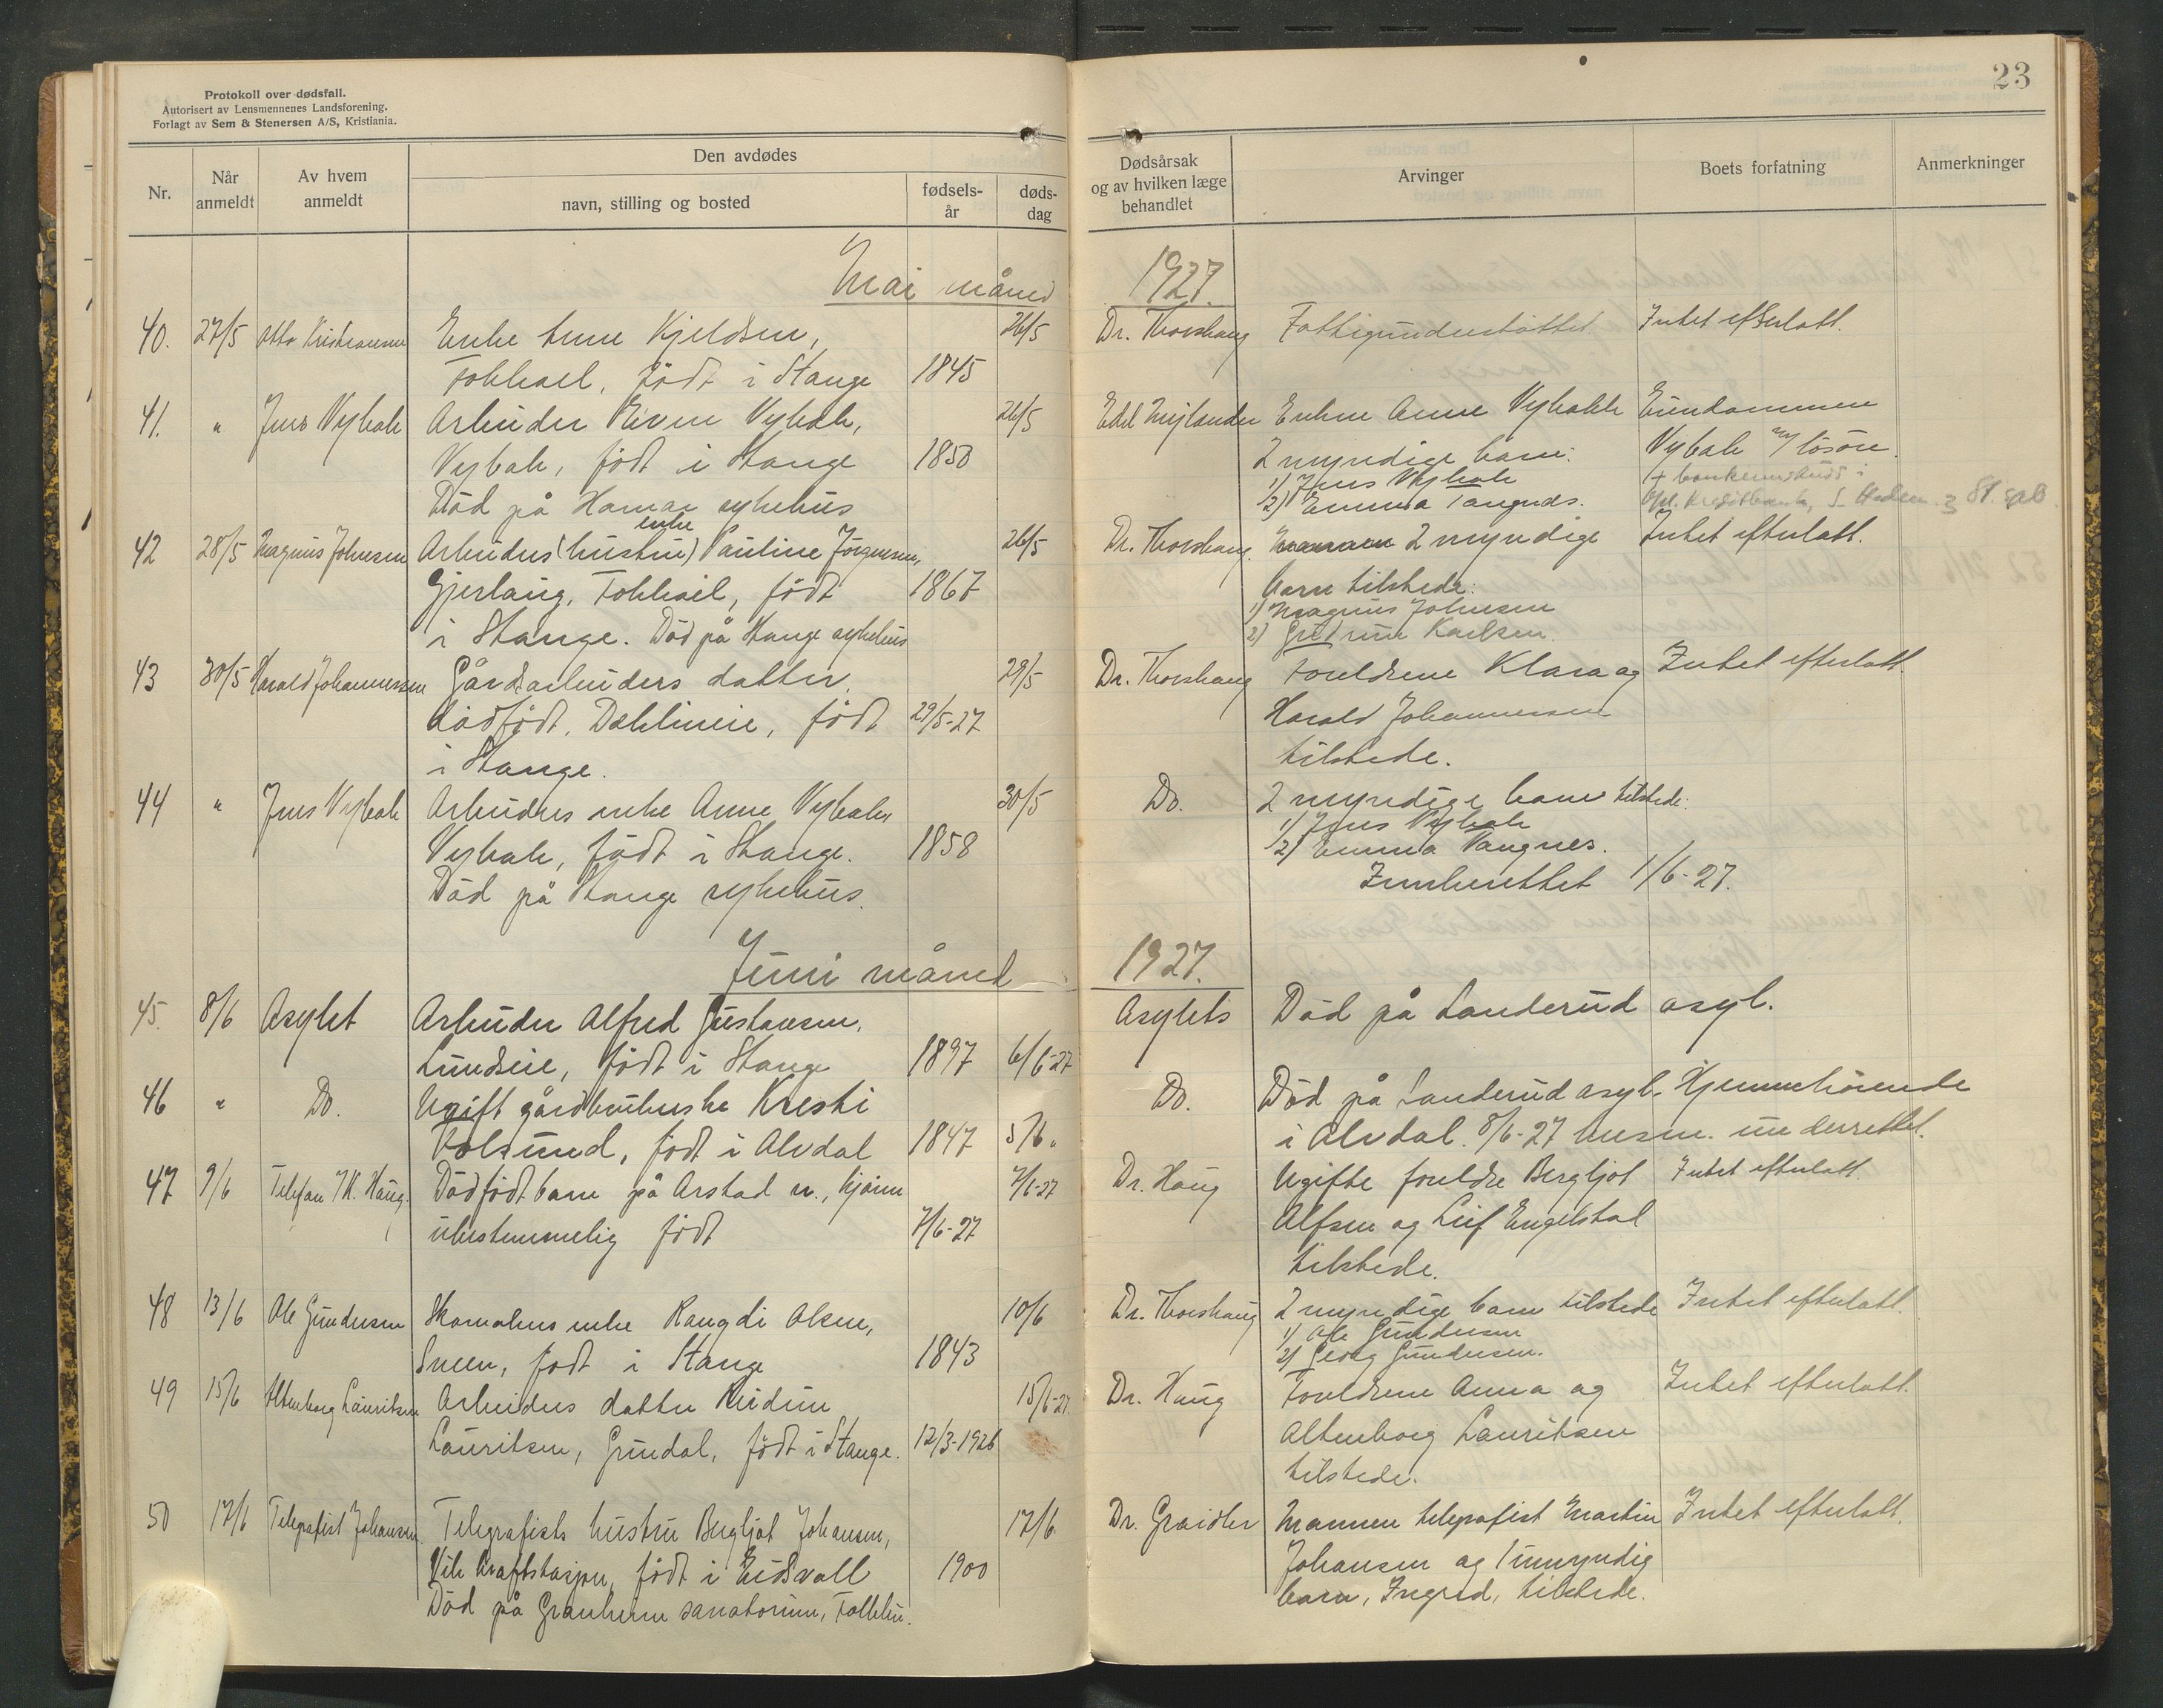 Protokoll over dødsfall.
Autorisert av Lensmennenes Landsforening.
Forlagt av Sem & Stenersen A/S, Kristiania.
23
Nr.
Når anmeldt
Av hvem anmeldt
Den avdødes
navn, stilling og bosted
fødsels-år
døds-dag
Dødsårsak og av hvilken læge behandlet
Arvinger
Boets forfatning
Anmerkninger
Mai måned 1927.
40. 27/5 Otto Kristiansen Enke Anne Kjeldsen, 26/5 Dr. Thorshaug Fattigunderstøttet. Intet efterlatt.
født i Stange 1845
41. " Jens Vybak Arbeider Even Vybak, 26/5 Enken Anne Vybakk Eiendommen
Vybak, født i Stange 1850 2 myndige barn: Vybak m/ løsøre.
1) Jens Vybak
Død på Hamar sykehus 2) Emma Tangnes.
42 28/5 Magnus Johnsen Arbeiders (hustru) enke Pauline Jørgensen, 26/5 Dr. Thorshaug. 2 myndige Intet efterlatt.
født 1867 barn tilstede:
1) Magnus Johnsen
i Stange. Død på Stange sykehus 2) Gudrun Karlsen.
43 30/5 Harald Johannessen Gårdsarbeiders datter, 29/5 Dr. Thorshaug Foreldrene Klara og Intet efterlatt.
dødfødt, Dælilineie, født 29/5-27 Harald Johannessen
i Stange. tilstede.
44 " Jens Vybak Arbeiders enke Anne Vybak, 30/5 Do. 2 myndige barn tilstede:
1) Jens Vybak
Vybak, født i Stange. 1858 2) Emma Tangnes.
Død på Stange sykehus. Innberettet 1/6-27.
Juni måned 1927.
45. 8/6 Asylet Arbeider Alfred Gustavsen, Asylets Død på Sanderud asyl.
Lundseie, født i Stange 1897 6/6-27
46 " Do. Ugift Kresti Do. Død på Sanderud asyl. Hjemmehørende
født i Alvdal 1847 5/6 " i Alvdal. 8/6-27 lensm. underrettet.
47 9/6 Telefon Haug. Dødfødt barn på Arstad n., kjønn 7/6-27 Dr. Haug Ugifte foreldre Bergljot Intet efterlatt.
ubestemmelig født 7/6-27 Alfsen og Leif Engelstad
tilstede.
48 13/6 Ole Gundersen Skomakers enke Rangdi Olsen, 10/6 Dr. Thorshaug 2 myndige barn tilstede Intet efterlatt.
1) Ole Gundersen
Sneen, født i Stange 1843 2) Georg Gundersen.
49 15/6 Altenborg Lauritsen Arbeiders datter Reidun 15/6-27 Dr. Haug Foreldrene Anna og Intet efterlatt.
Lauritsen, Grundal, født i Stange. 12/3-1926 Altenborg Lauritsen
tilstede.
50 17/6 Telegrafist Johansen. Telegrafists hustru Bergljot Johansen, 17/6 Dr. Mannen telegrafist Martin Intet efterlatt.
Vik kraftstasjon, født i Eidsvoll 1900 Johansen og 1 umyndig
Død på Granheim sanatorium, Follebu. barn, Ingrid, tilstede.